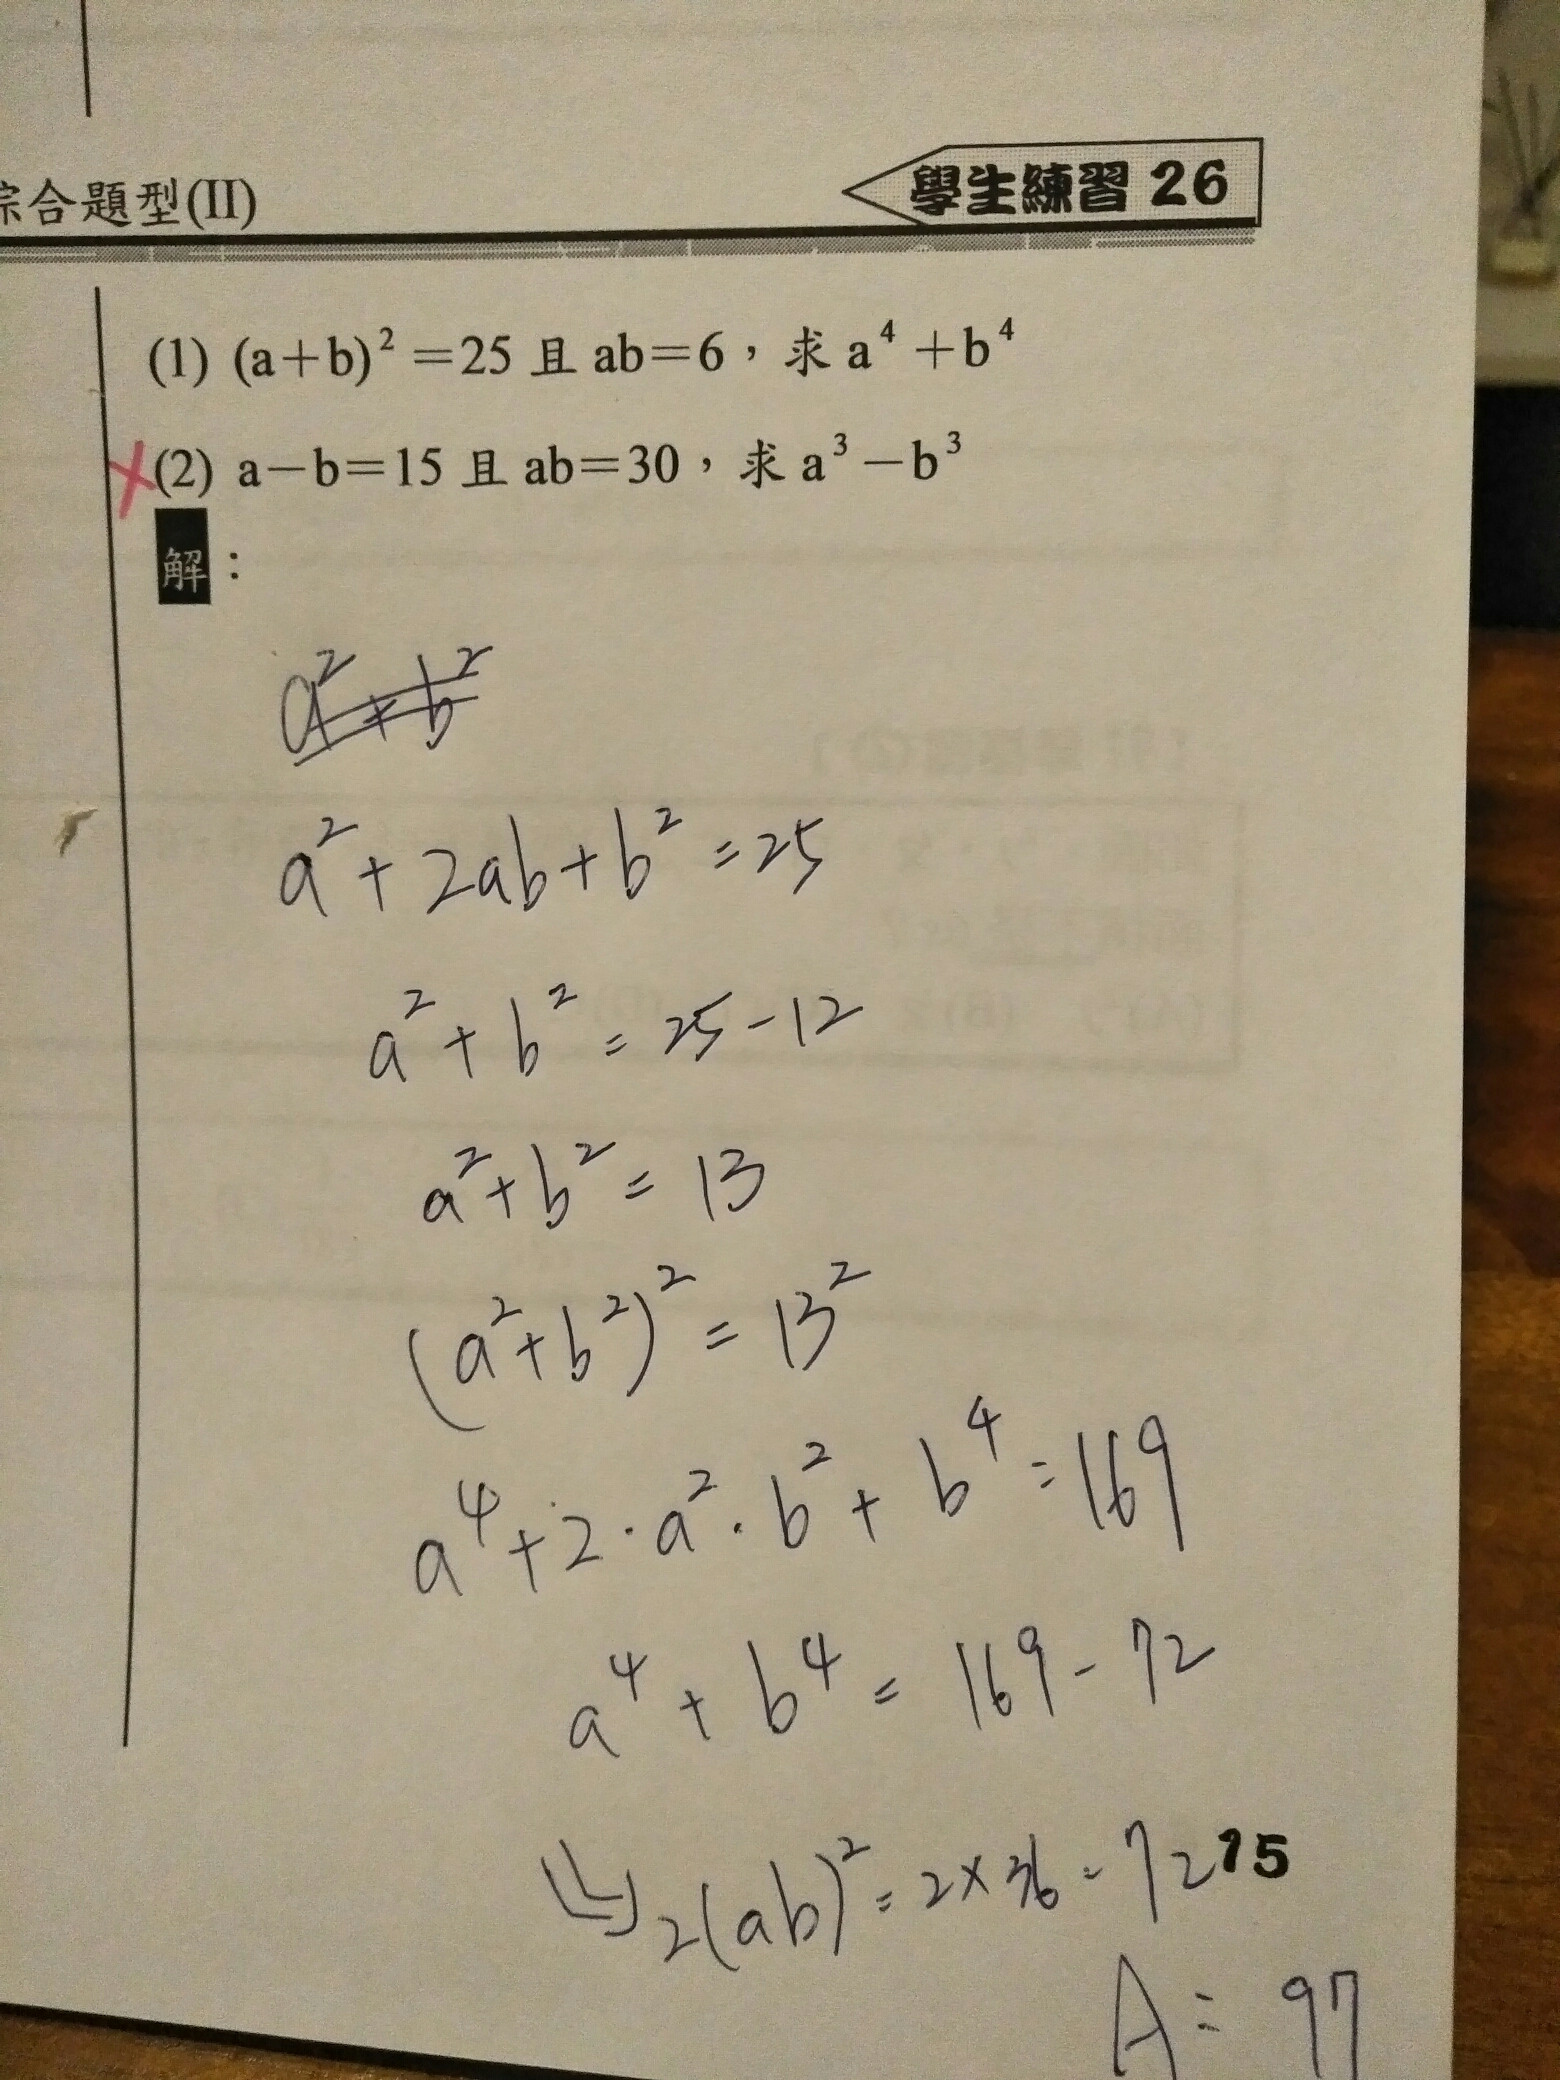 綜合題型(II)
學生練習 26
(1) (a+b)² =25 且 ab=6，求 a⁴ +b⁴
(2) a−b=15 且 ab=30，求 a³ −b³
解：
a² + b²
a² + 2ab + b² = 25
a² + b² = 25 - 12
a² + b² = 13
(a² + b²)² = 13²
a⁴ + 2 · a² · b² + b⁴ = 169
a⁴ + b⁴ = 169 - 72
2(ab)² = 2 × 36 = 72
15
A = 97